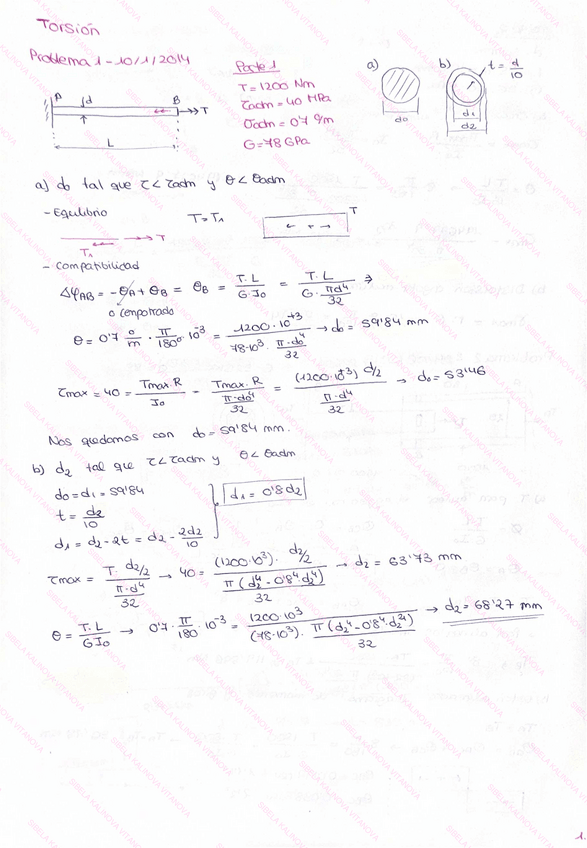 Torsión
Problema 1 - 10/1/2014
Parte 1
T = 1200 Nm
τadm = 40 MPa
θadm = 0'7 º/m
G = 78 GPa
A d B T
L
a) b) t = d/10
d0 d1 d2
a) d0 tal que τ < τadm y θ < θadm
- Equilibrio T = T1 T
T1 T
- Compatibilidad
ΔφAB = -θA + θB = θB = T·L / G·J0 = T·L / G·πd⁴/32 ⇒
0 (empotrado)
θ = 0'7 º/m · π/180º · 10⁻³ = 1200·10⁺³ / 78·10³ · π·d0⁴/32 → d0 = 59'84 mm
τmax = 40 = Tmax.R / J0 = Tmax.R / π·d0⁴/32 = (1200·10³) d/2 / π·d⁴/32 → d0 = 53'46
Nos quedamos con d0 = 59'84 mm.
b) d2 tal que τ < τadm y θ < θadm
d0 = d1 = 59'84
t = d2/10
d1 = d2 - 2t = d2 - 2d2/10
d1 = 0'8 d2
τmax = T · d2/2 / π·d⁴/32 → 40 = (1200·10³) · d2/2 / π(d2⁴ - 0'8⁴ d2⁴)/32 → d2 = 63'73 mm
θ = T.L / GJ0 → 0'7 · π/180 · 10⁻³ = 1200·10³ / (78·10³) · π(d2⁴ - 0'8⁴ d2⁴)/32 → d2 = 68'27 mm
1.
SIBILA KALINOVA VITANOVA